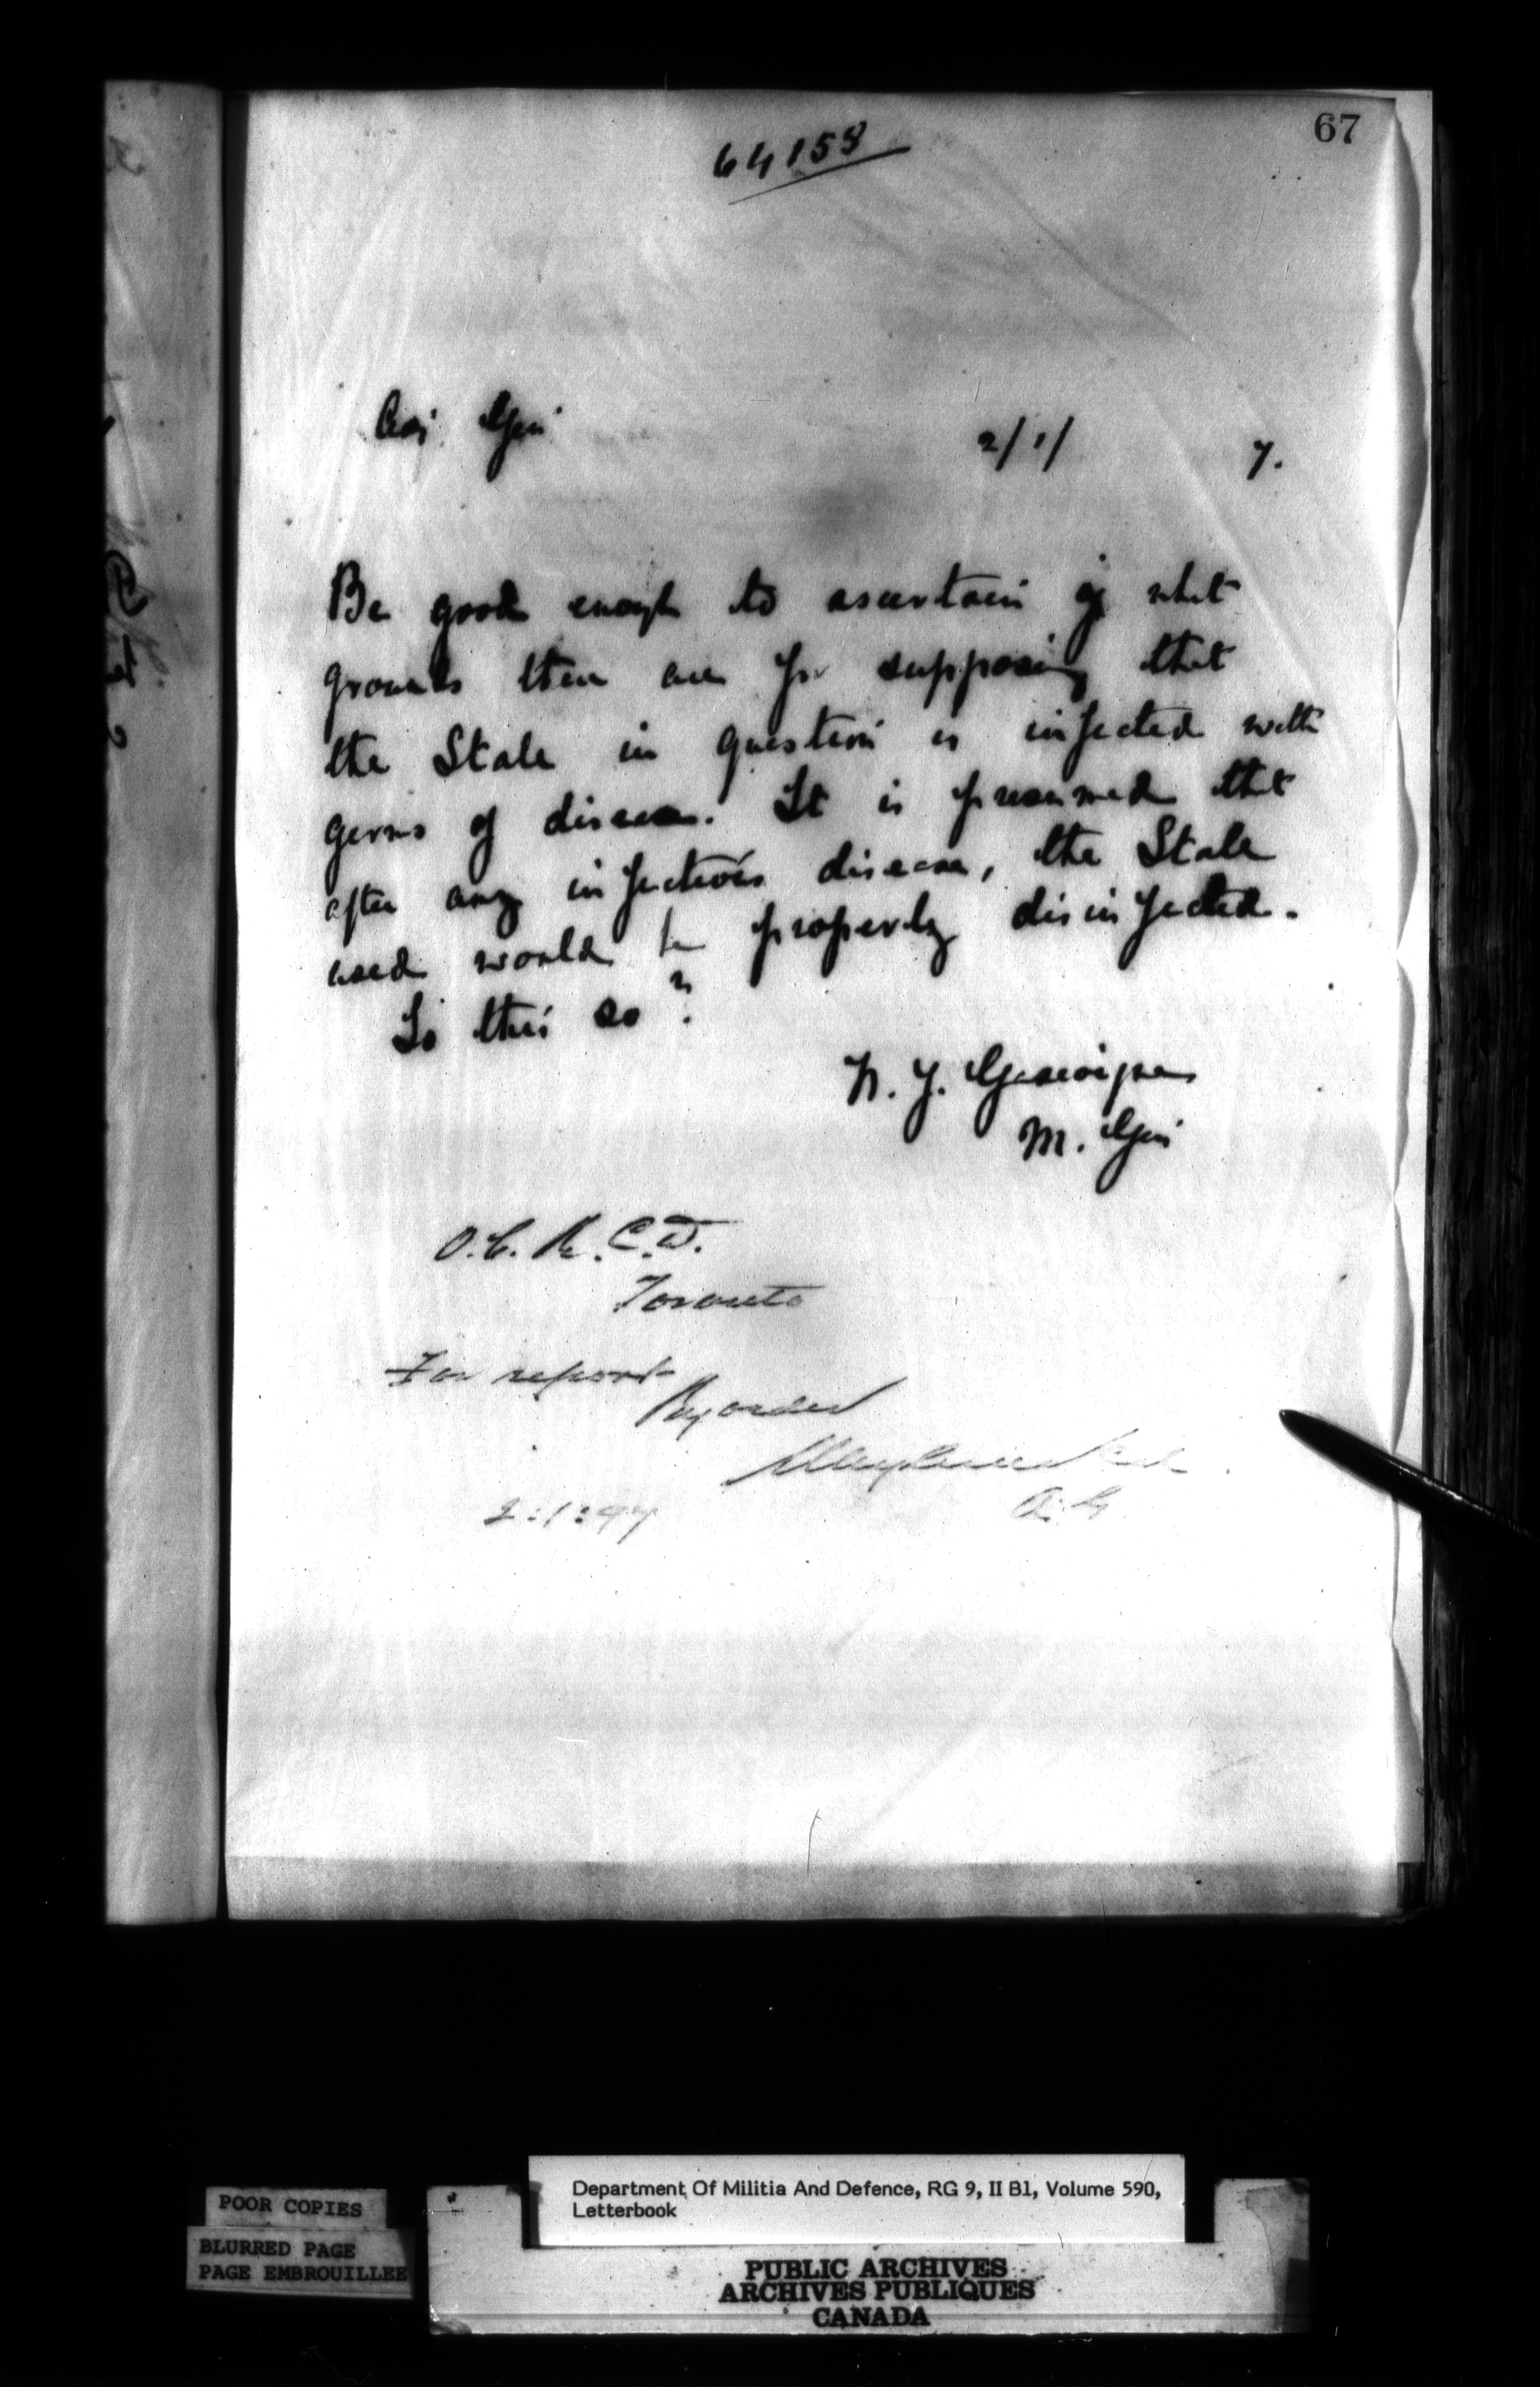 67
64158
Adj Gen 2/1/ 7.
Be good enough to ascertain of what
grounds there are for supposing that
the Stable in question is infected with
germs of disease. It is presumed that
after any infectious disease, the Stable
used would be properly disinfected.
Is this so?
W. J. Gascoigne
M. Gen
O.C. R.C.D.
Toronto
For report
By order
A.G.
2:1:97
Department Of Militia And Defence, RG 9, II B1, Volume 590,
Letterbook
POOR COPIES
BLURRED PAGE
PAGE EMBROUILLEE
PUBLIC ARCHIVES
ARCHIVES PUBLIQUES
CANADA